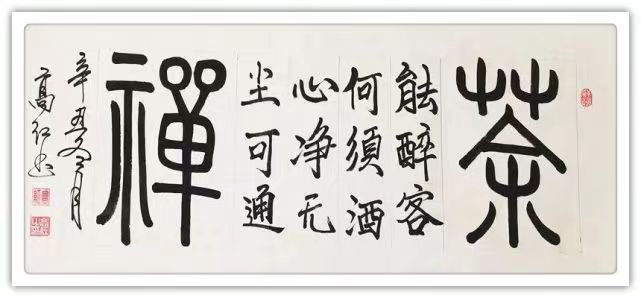 茶
能醉客
何須酒
心净无
尘可通
禪
辛丑冬月
高红书